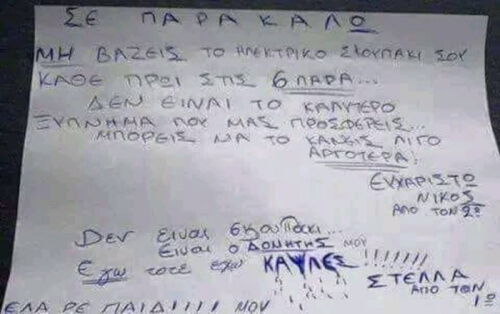 ΣΕ ΠΑΡΑΚΑΛΩ
ΜΗ ΒΑΖΕΙΣ ΤΟ ΗΛΕΚΤΡΙΚΟ ΣΚΟΥΠΑΚΙ ΣΟΥ
ΚΑΘΕ ΠΡΩΙ ΣΤΙΣ 6 ΠΑΡΑ...
ΔΕΝ ΕΙΝΑΙ ΤΟ ΚΑΛΥΤΕΡΟ
ΞΥΠΝΗΜΑ ΠΟΥ ΜΑΣ ΠΡΟΣΦΕΡΕΙΣ...
ΜΠΟΡΕΙΣ ΝΑ ΤΟ ΚΑΝΕΙΣ ΛΙΓΟ
ΑΡΓΟΤΕΡΑ!
ΕΥΧΑΡΙΣΤΩ
ΝΙΚΟΣ
ΑΠΟ ΤΟΝ 2º
Δεν ειναι σκουπακι...
Ειναι ο ΔΟΝΗΤΗΣ ΜΟΥ
Εγω τοτε εχω ΚΑΥΛΕΣ!!!!!!!
ΣΤΕΛΛΑ
ΑΠΟ ΤΟΝ
1º
ΕΛΑ ΡΕ ΠΑΙΔΙ!!!! ΜΟΥ